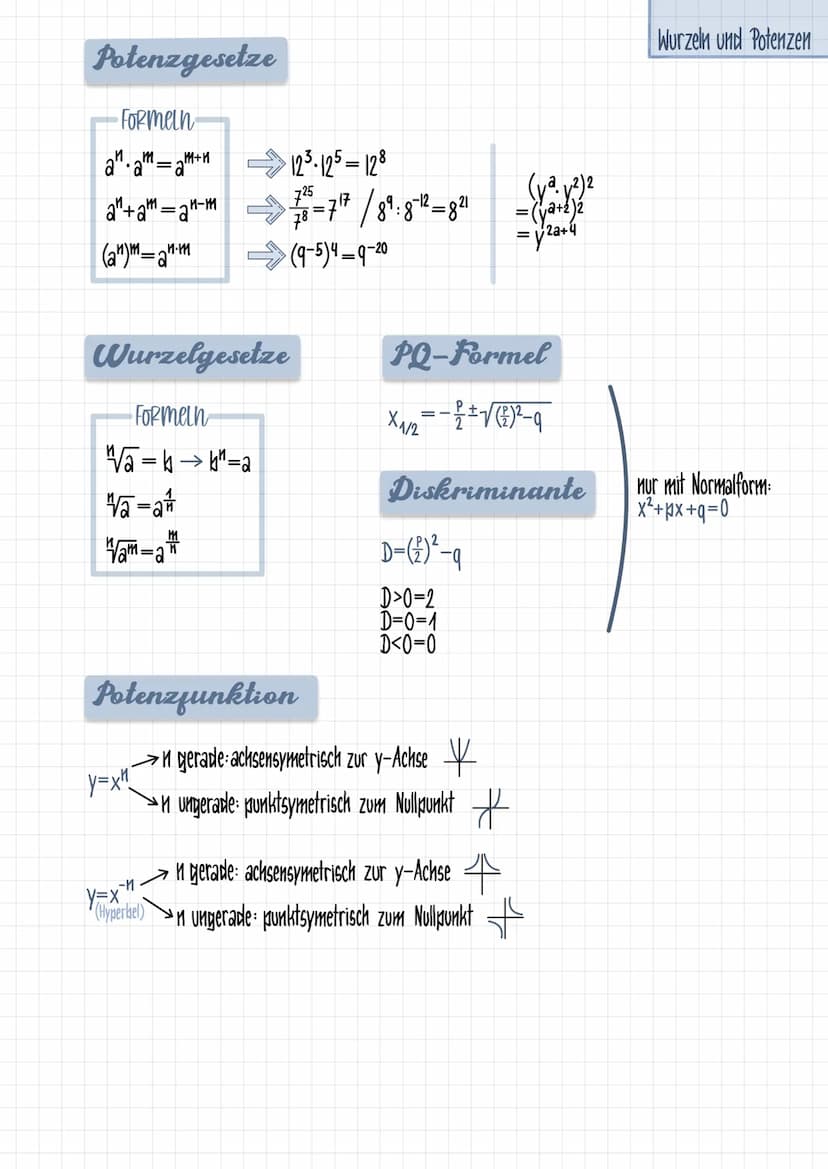 Wurzeln und Potenzen
Potenzgesetze
Formeln
aⁿ · aᵐ = aᵐ⁺ⁿ ⇒ 12³ · 12⁵ = 12⁸
aⁿ + aᵐ = aⁿ⁻ᵐ ⇒ 7²⁵/7⁸ = 7¹⁷ / 8⁹ : 8⁻¹² = 8²¹
(aⁿ)ᵐ = aⁿ·ᵐ ⇒ (9⁻⁵)⁴ = 9⁻²⁰
(yᵃ · y²)²
= (yᵃ⁺²)²
= y²ᵃ⁺⁴
Wurzelgesetze
Formeln
ⁿ√a = b → bⁿ = a
ⁿ√a = a^(1/n)
ⁿ√aᵐ = a^(m/n)
PQ-Formel
X₁/₂ = - p/2 ± √((p/2)² - q)
Diskriminante
D = (p/2)² - q
D>0=2
D=0=1
D<0=0
nur mit Normalform:
x² + px + q = 0
Potenzfunktion
y=xⁿ
→ n gerade: achsensymetrisch zur y-Achse
→ n ungerade: punktsymetrisch zum Nullpunkt
y=x⁻ⁿ
(Hyperbel)
→ n gerade: achsensymetrisch zur y-Achse
→ n ungerade: punktsymetrisch zum Nullpunkt